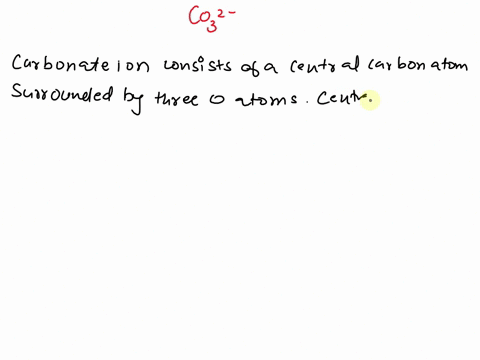 CO3 2-
Carbonate ion consists of a central carbon atom
Surrounded by three O atoms. Centr